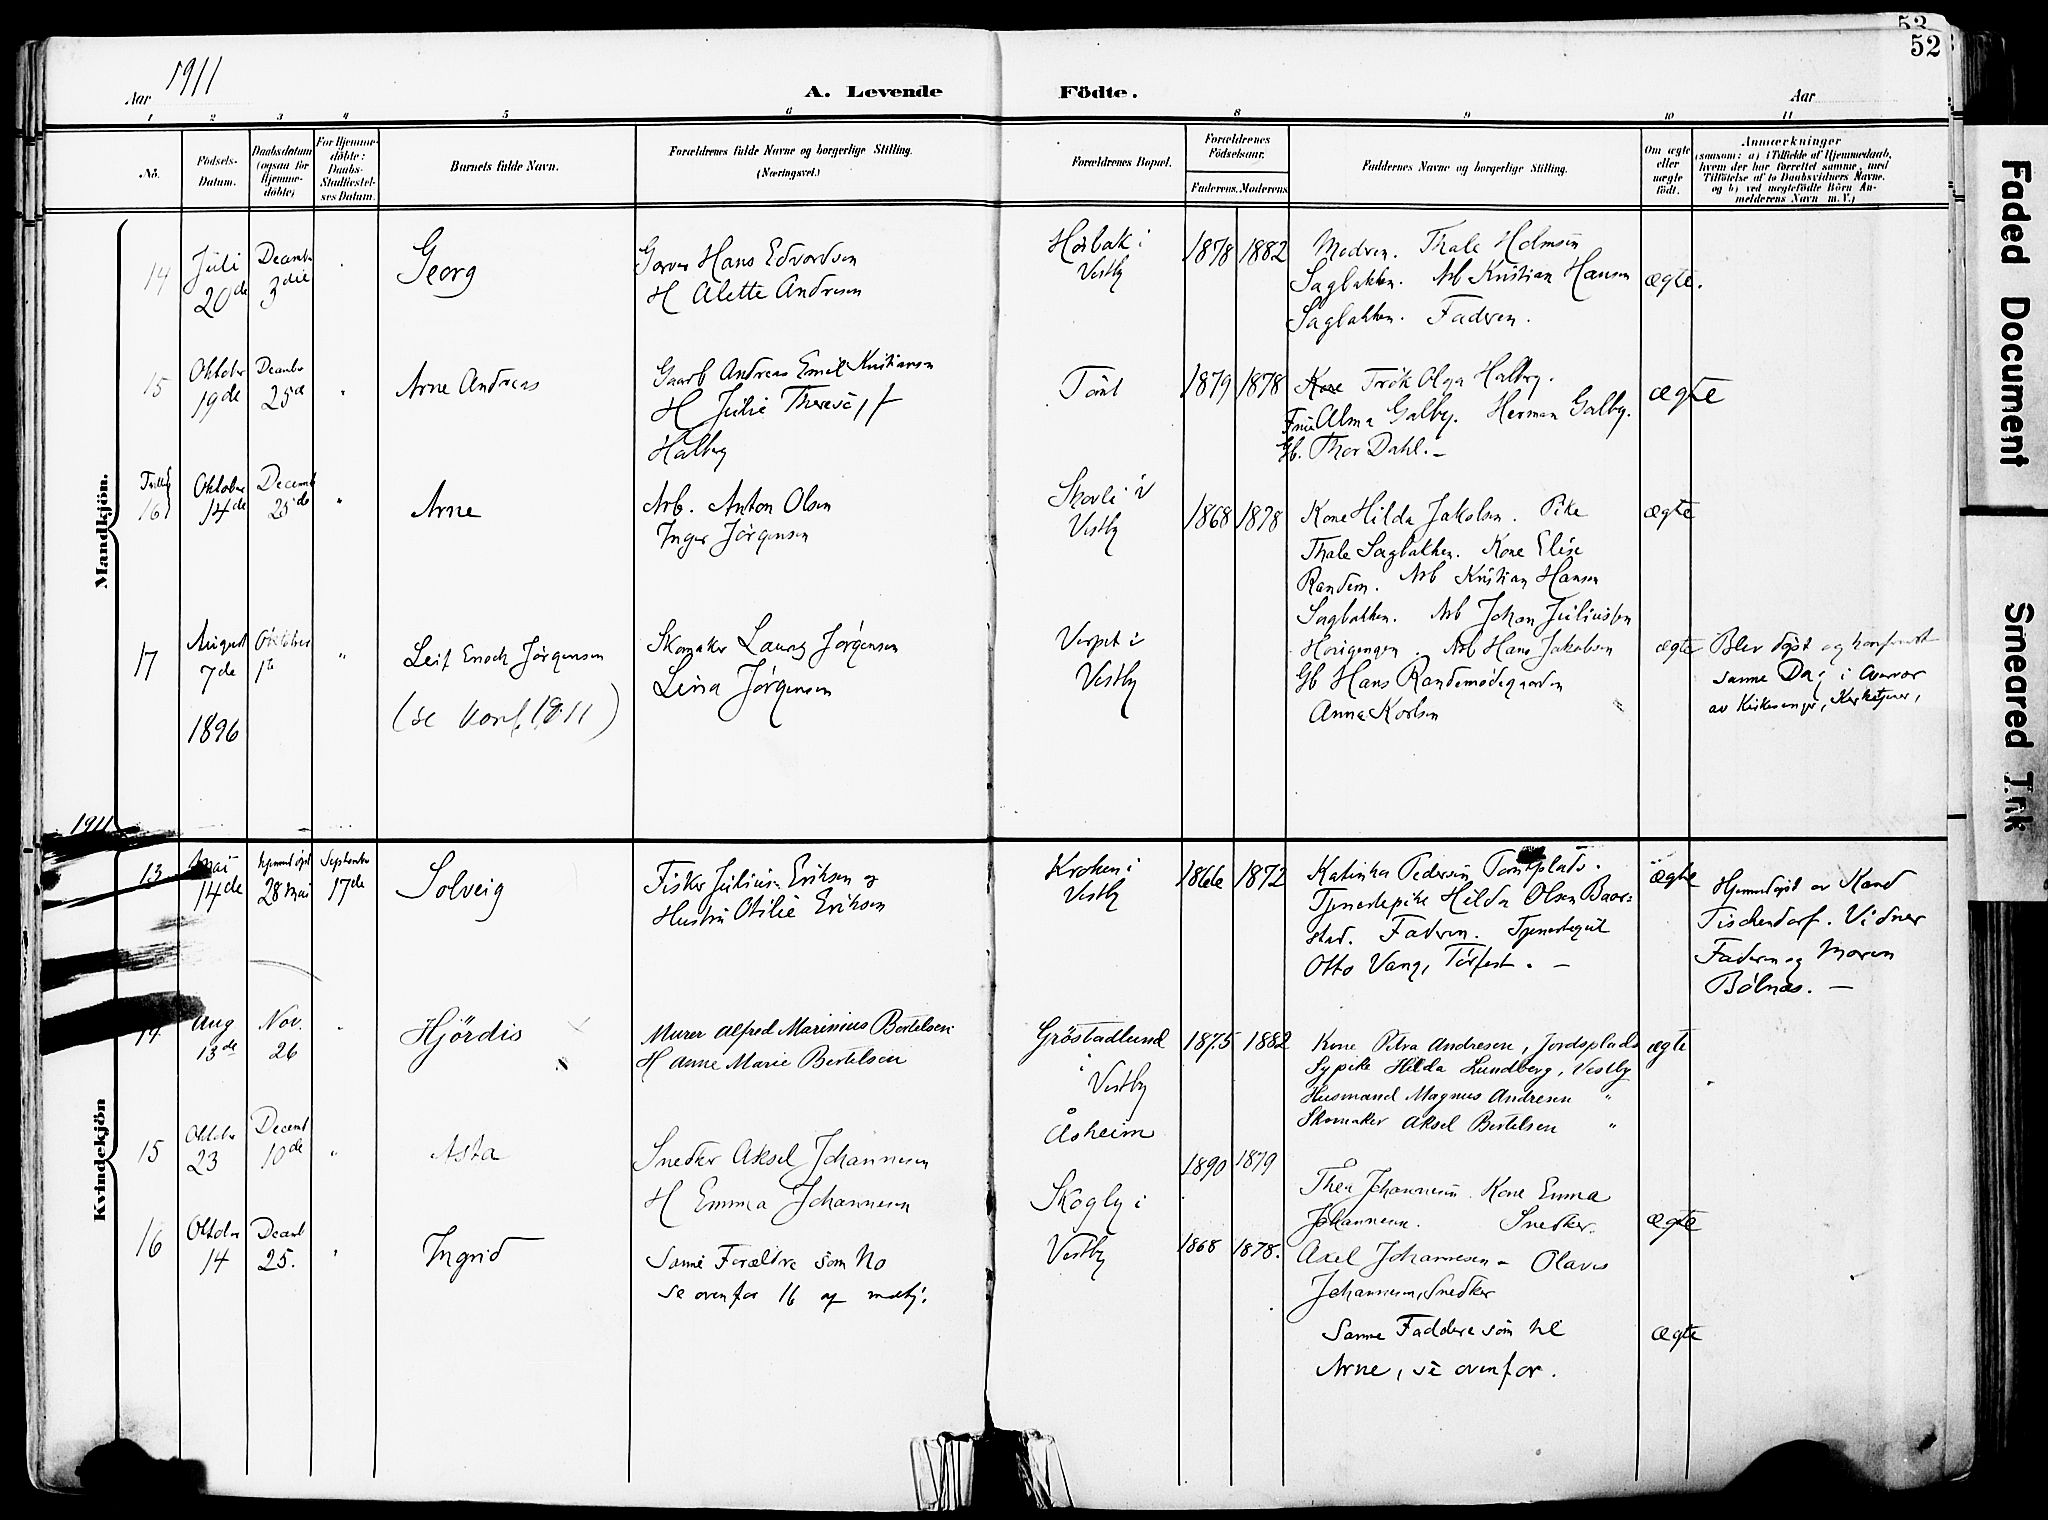 53
52
Aar 1911
A. Levende Födte.
Aar
1 2 3 4 5 6 8 9 10 11
No.
Födsels-
Datum.
Daabsdatum
(ogsaa for
Hjemme-
döbte)
For Hjemme-
döbte:
Daabs-
Stadfæstel-
ses Datum.
Barnets fulde Navn.
Forældrenes fulde Navne og borgerlige Stilling.
(Næringsvei.)
Forældrenes Bopæl.
Forældrenes
Födselsaar.
Faderens. Moderens.
Faddernes Navne og borgerlige Stilling.
Om ægte
eller
uægte
födt.
Anmærkninger
(saasom: a) i Tilfælde af Hjemmedaab,
hvem der har forrettet samme, med
Tilföielse af to Daabsvidners Navne.
og b) ved uegtefödte Börn An-
melderens Navn m. V.)
Mandkjön.
14
Juli
20de
Decemb.
3die
Georg
Garver Hans Edvardsen
H Alette Andresen
Hølbak i
Vestby
1878 1882
Modren. Thale Holmsen
Sagbakken. Arb Kristian Hansen
Sagbakken. Faderen.
ægte.
15
Oktober
19de
Decemb
25de
"
Arne Andreas
Gaarb Andreas Emil Kristiansen
H Julie Therese, f
Halberg
Tomt
1879 1878
Kone Frøk Olga Halberg.
Frue Alma Galby. Herman Galby.
Gb. Thor Dahl. –
ægte
Tvilling
16
Oktober
14de
Decemb
25de
"
Arne
Arb. Anton Olsen
Inger Jørgensen
Skovli i
Vestby
1868 1878
Kone Hilda Jakobsen. Pike
Thale Sagbakken. Kone Elise
Randem. Arb Kristian Hansen
Sagbakken. Arb Johan Juliussen
ægte
17
August
7de
1896
Oktober
1te
"
Leif Enoch Jørgensen
(se konf. 1911)
Skomaker Laurz Jørgensen
Lina Jørgensen
Verpet i
Vestby
Arb Hans Jakobsen
Gb Hans Randemødegaarden
Anna Karlsen
ægte
Blev døpt og konfirmert
samme Dag i nærvær
av Kirkesanger, Kirketjener,
1911
Kvindekjön
13
Mai
14de
hjemmedøpt
28 Mai
September
17de
Solveig
Fisker Julius Eriksen og
Hustru Otilie Eriksen
Kroken i
Vestby
1866 1872
Katinka Pedersen Tomtplads.
Tjenestepike Hilda Olsen Baar-
stad. Faderen. Tjenestegut
Otto Vang, Tørfest. –
ægte
Hjemmedøpt av Kand
Tischendorf. Vidner
Faderen og Moren
Bølnæs. –
14
Aug
13de
Nov.
26
"
Hjördis
Murer Alfred Marinius Bertelsen
H Anne Marie Bertelsen
Gröstadlund
i
Vestby
1875 1882
Kone Petra Andresen, Jordsplads
Sypike Hilda Lundberg, Vestby
Husmand Magnus Andresen "
Skomaker Aksel Bertelsen "
ægte
15
Oktober
23
Decemb
10de
"
Asta
Snedker Aksel Johannesen
H Emma Johannesen
Åsheim
1890 1879
Thea Johannesen Kone Emma
Johannesen. Snedker.
Axel Johannesen – Olaves
Johannesen, Snedker
ægte
16
Oktober
14
Decemb
25.
"
Ingrid
Samme Forældre som No
se ovenfor 16 af mdkj.
Skogly i
Vestby
1868 1878.
Samme Faddere som til
Arne, se ovenfor.
ægte
Faded Document
Smeared Ink